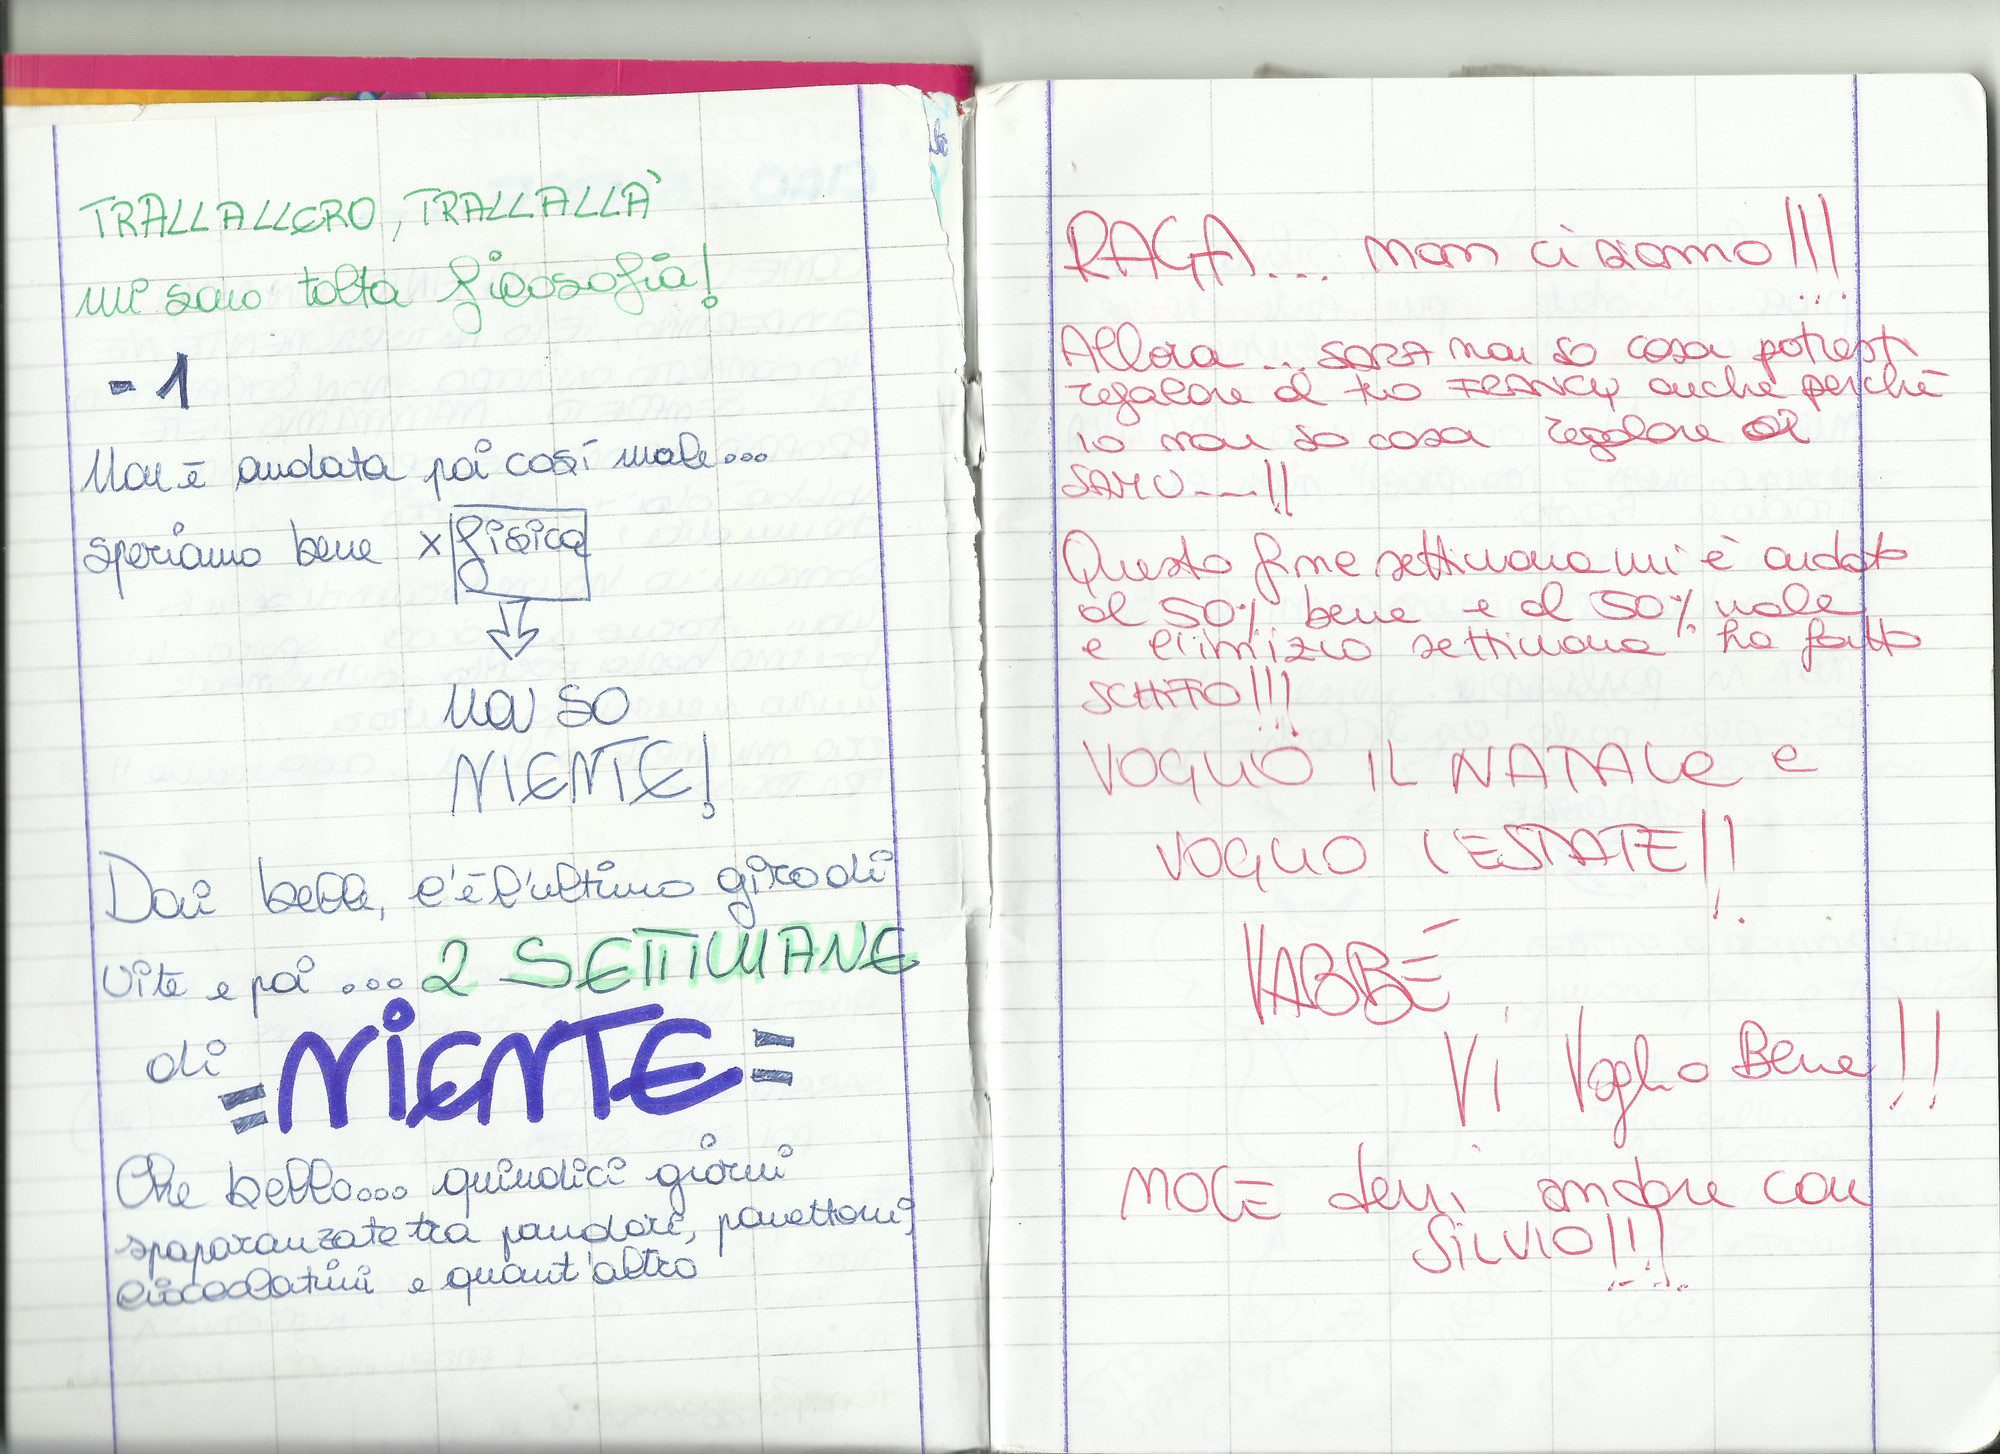 TRALLALLERO, TRALLALLÀ
mi sono tolta filosofia!
- 1
Non è andata poi così male...
speriamo bene x fisica
NON SO
NIENTE!
Dai belle, c'è l'ultimo giro di
vite e poi ... 2 SETTIMANE
di =NIENTE=
Che bello... quindici giorni
spaparanzate tra pandori, panettoni,
cioccolatini e quant'altro
RAGA... non ci siamo!!!
Allora ... SARA non so cosa potresti
regalare al tuo FRANCY anche perché
io non so cosa regalare al
SAMU---!!
Questo fine settimana mi è andato
al 50% bene e al 50% male
e l'inizio settimana ha fatto
SCHIFO!!!
VOGLIO IL NATALE e
VOGLIO L'ESTATE!!
VABBÉ
Vi Voglio Bene!!
MOCE devi andare con
SILVIO!!!